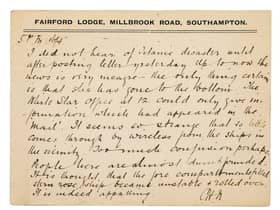 FAIRFORD LODGE, MILLBROOK ROAD, SOUTHAMPTON.
I did not hear of Titanic disaster until
after posting letter yesterday Up to now the
news is very meagre – the only thing certain
is that she has gone to the bottom. The
White Star Office at 12 could only give in-
formation which had appeared in the
"Mail". It seems so strange that so little
comes through by wireless from the ships in
the vicinity. Too much confusion perhaps.
People here are almost dumbfounded.
It is thought that the fore compartments filled
stern rose, ship became unstable & rolled over
It is indeed appalling